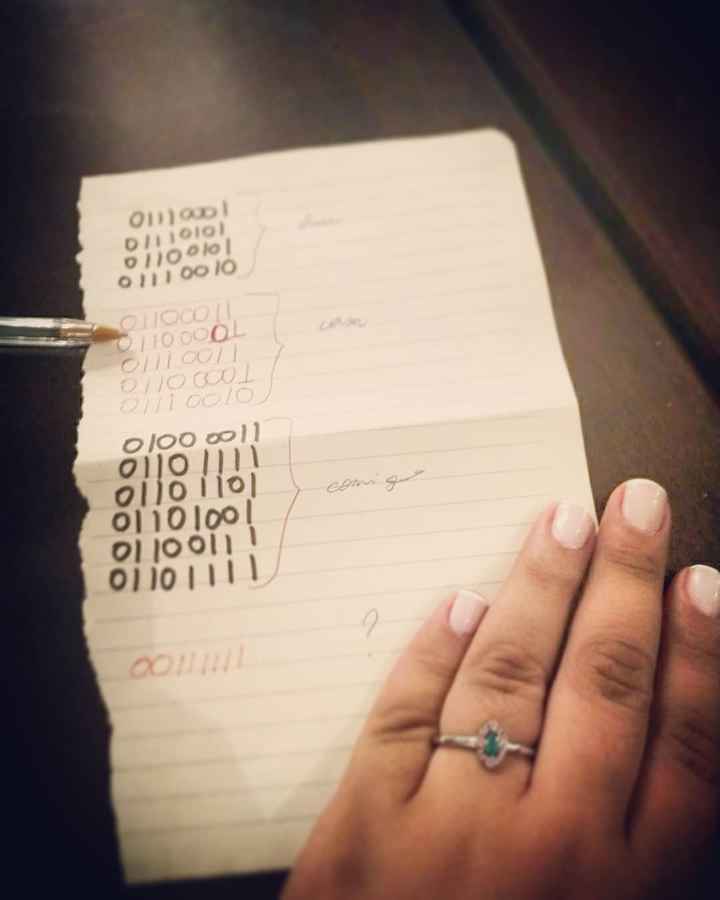 01110001
01110101
01100101
01110010
01100011
01100001 casar
01110011
01100001
01110010
01000011
01101111
01101101 comigo
01101001
01100111
01101111
?
00111111